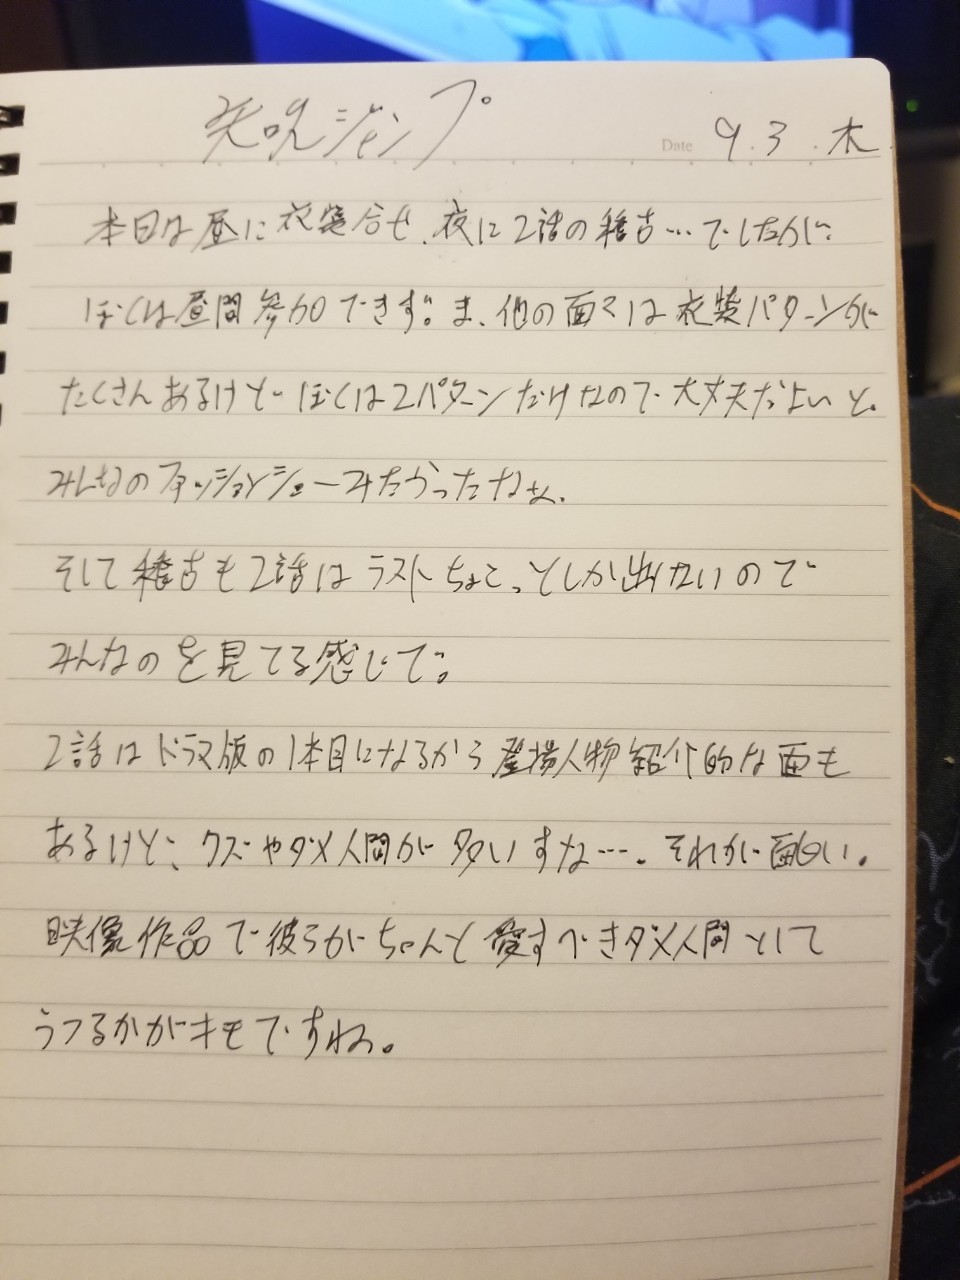 矢吹ジャンプ
Date 9.3.木
本日は昼に衣装合せ、夜に2話の稽古…でしたが、
ぼくは昼間参加できず。ま、他の面々は衣装パターンが
たくさんあるけどぼくは2パターンだけなので大丈夫だよいと。
みんなのファッションショーみたかったなぁ。
そして稽古も2話はラストちょこっとしか出ないので
みんなのを見てる感じで。
2話はドラマ版の1本目になるから登場人物紹介的な面も
あるけど、クズやダメ人間が多いすな…。それが面白い。
映像作品で彼らがちゃんと愛すべきダメ人間として
うつるかがキモですね。